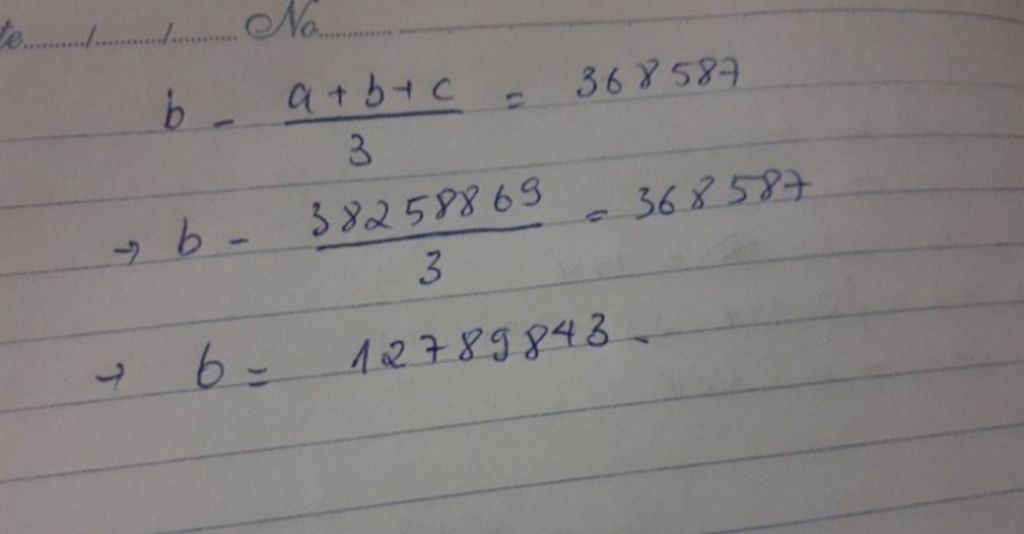 te........./........./......... No.........
b - \frac{a+b+c}{3} = 368587
→ b - \frac{38258869}{3} = 368587
→ b = 12789843.